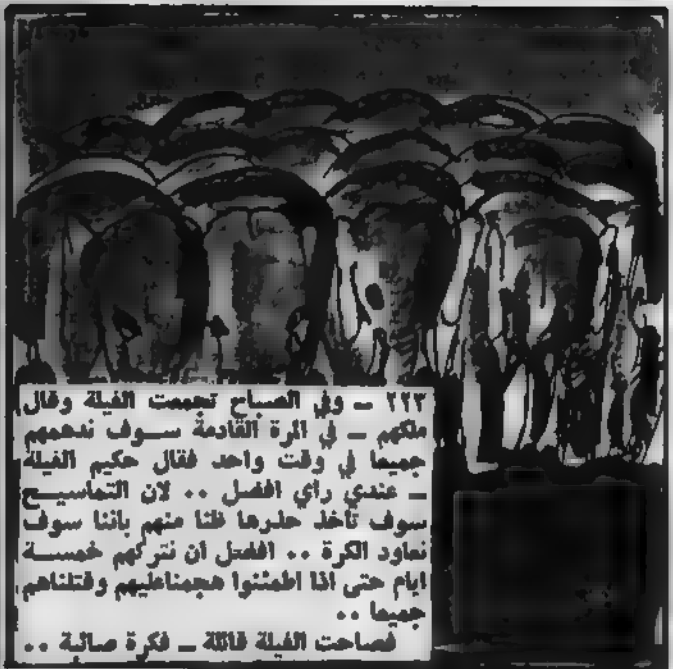 ٢٢٣ ــ وفي الصباح تجمعت الفيلة وقال
ملكهم ــ في المرة القادمة سـوف ندهمهم
جميعا في وقت واحد فقال حكيم الفيلة
ــ عندي رأي افضل ٠٠ لان التماسيـح
سوف تأخذ حذرها ظنا منهم باننا سوف
نعاود الكرة ٠٠ افضل ان نتركهم خمسـة
ايام حتى اذا اطمئنوا هجمناعليهم وقتلناهم
جميعا ٠٠
فصاحت الفيلة قائلة ــ فكرة صائبة ٠٠